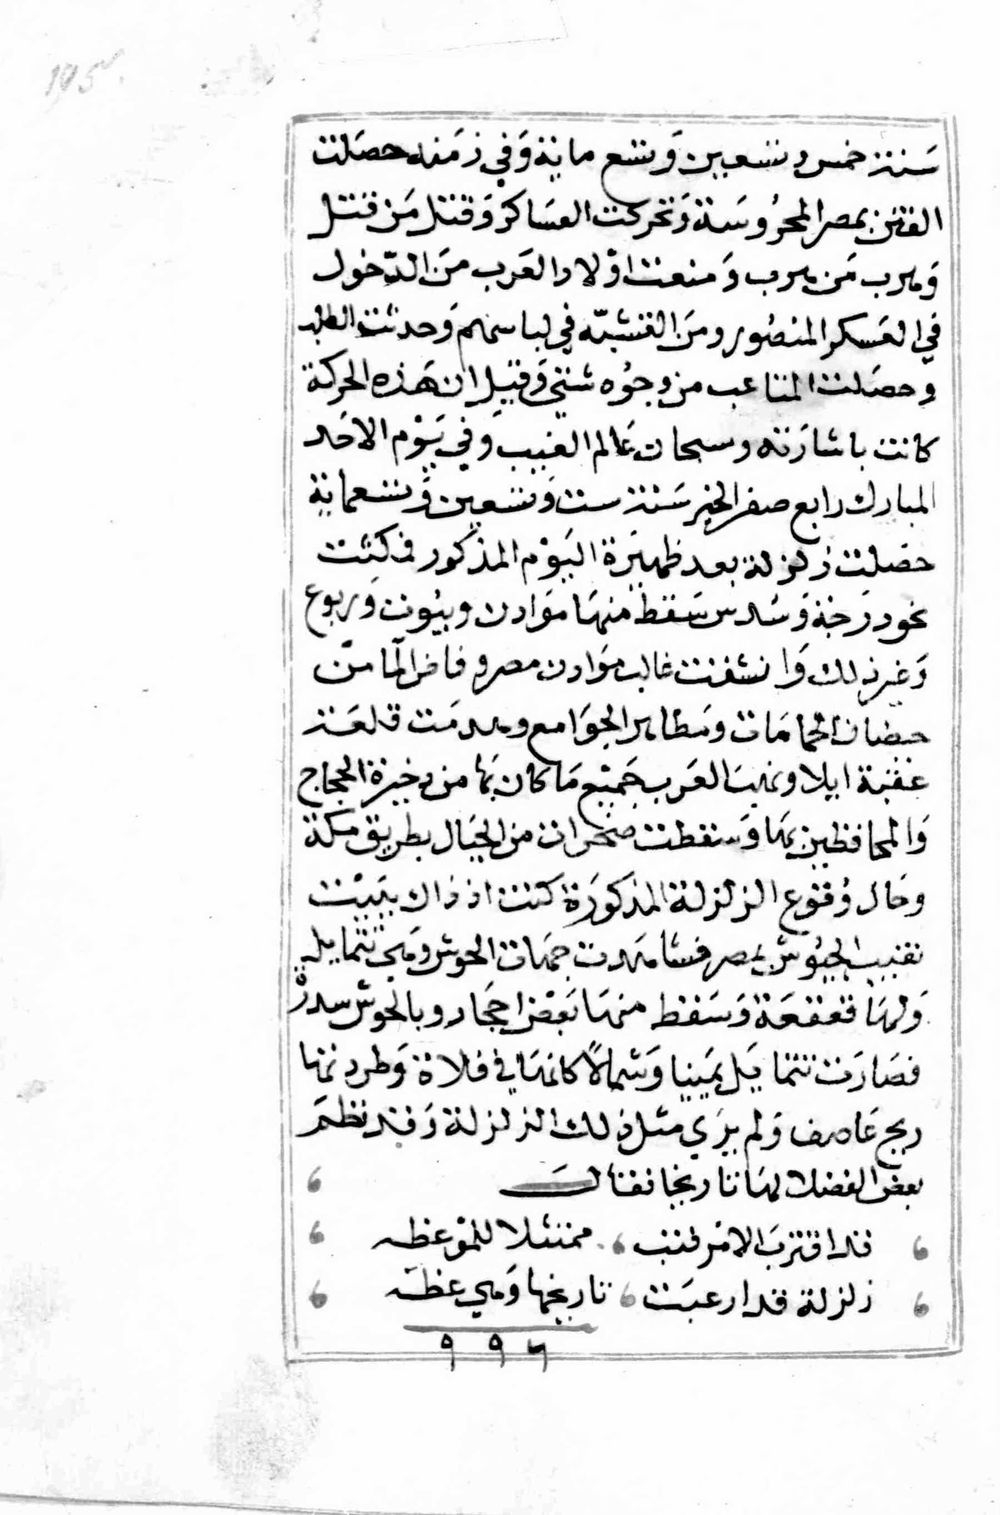 195
سَنة خمس وتسعين وَتسع ماية وَفي زمَنه حصَلت
الفتن بمصر المحرُوسَة وَتحركت العسَاكر وَقتل مَن قتل
وَهرب مَن هرب وَمنعت اوْلاد العَرب منَ الدّخول
في العَسكر المنصُور ومنَ التشبّه في لباسهم وَحدثت الطلب
وحصَلت المتاعب من وجوُه شتي وَقيل ان هَذه الحركة
كانت باشارَته وسبحان عَالم الغيب وَفي يَوْم الاحَد
المبارك رابع صفر الخير سَنة ست وَتسعين وَتسعماية
حصَلت زلزلة بعد ظهيرَة اليَوْم المذكور فمكثت
نحو دَرَجة وَسُدس سَقط منهَا موَادن وبيُوت وَربوع
وَغير ذلك وَانشقت غالب موَادن مصر وفاض الما من
حيضان الحمامَات ومَطاهر الجوَامع وهدمَت قلعَة
عَقبة ايلا ونهبَ العَرب جَميْع مَا كان بهَا من ذخيرَة الحجاج
وَالمحافظين بهَا وَسقطت صخرات من الجبَال بطريق مكة
وحَال وُقوع الزلزلة المذكورَة كنت اذ ذاك ببَيْت
نقيب الجيُوش بمصر فشاهَدت جهَات الحوش وَهي تتمايل
وَلهَا قعقعَة وَسَقط منهَا بَعْض احجَار وبالحوش سدرْة
فصَارَت تتمايَل يَمينا وَشمالاً كانهَا في فلاة وَطردتها
ريح عَاصف وَلم يرَي مثل ذلك الزلزلة وَقد نظمَ
بعض الفضلا لهَا تاريخا فقالَ
قد اقتربَ الامْر فتب ، ممتثلا للموْعظه
زلزلة قد ارعبَت ، تاريخها وَهي عظه
٩٩٦